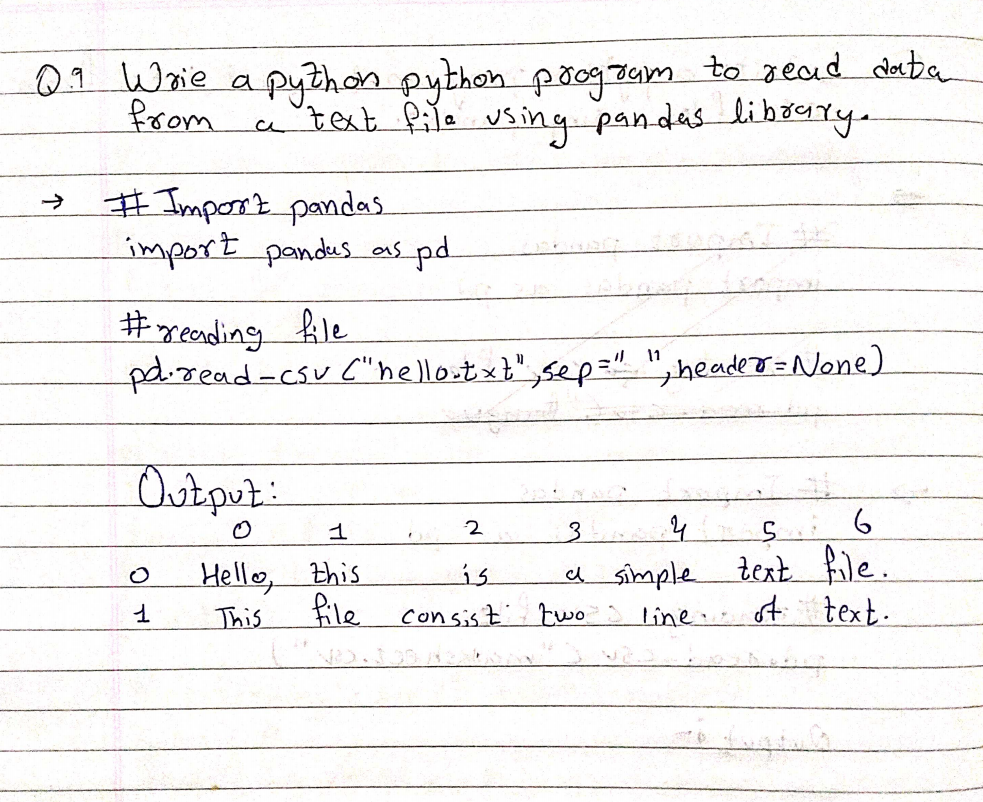 Q.9 Wrie a python python program to read data
from a text file using pandas library.
→ # Import pandas
import pandas as pd
# reading file
pd.read_csv ("hello.txt", sep=" ", header=None)
Output:
0 1 2 3 4 5 6
0 Hello, this is a simple text file.
1 This file consist two line of text.